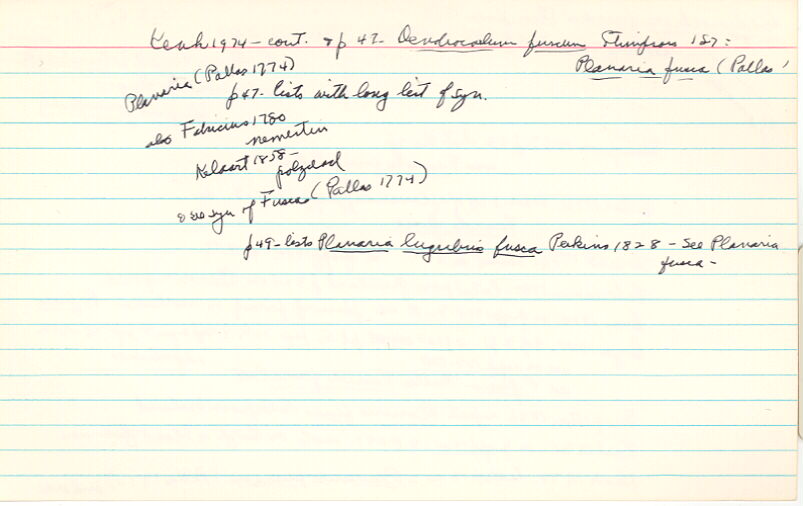 1974 - cont. p 47 - Dendrocoelum fuscum Stimpson 187:
Planaria fusca (Pallas
Planaria (Pallas 1774)
p 47. lists with long list of syn.
also Fabricius 1780
nemertin
Kelaart 1858 -
polyclad
syn of Fusca (Pallas 1774)
p 49 - lists Planaria lugubris fusca Perkins 1828 - See Planaria
fusca -